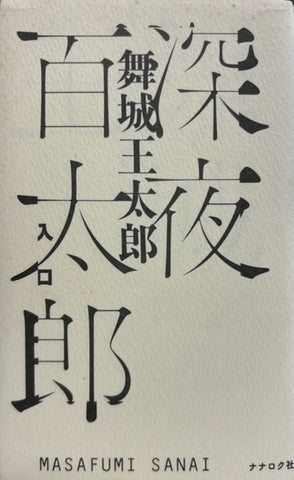 深夜
百太郎
舞城王太郎
入口
MASAFUMI SANAI
ナナロク社